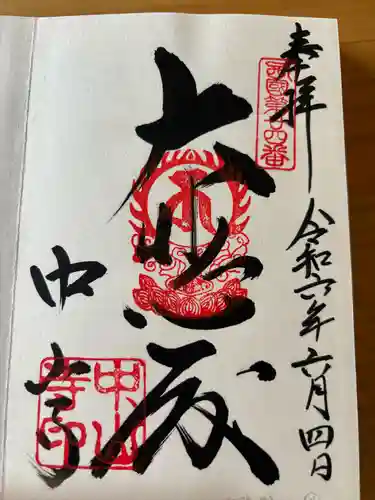 奉拝
西國第廿四番
令和六年六月四日
大悲殿
中山寺
中山寺印